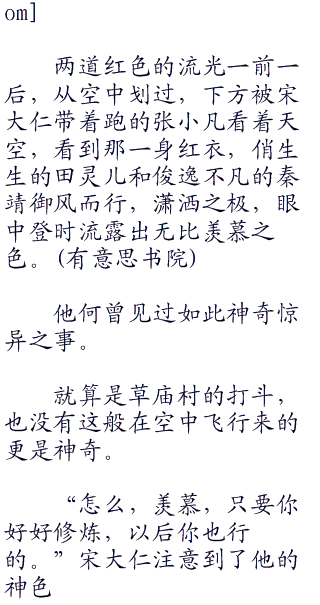 om]
两道红色的流光一前一
后，从空中划过，下方被宋
大仁带着跑的张小凡看着天
空，看到那一身红衣，俏生
生的田灵儿和俊逸不凡的秦
靖御风而行，潇洒之极，眼
中登时流露出无比羡慕之
色。(有意思书院)
他何曾见过如此神奇惊
异之事。
就算是草庙村的打斗，
也没有这般在空中飞行来的
更是神奇。
“怎么，羡慕，只要你
好好修炼，以后你也行
的。”宋大仁注意到了他的
神色